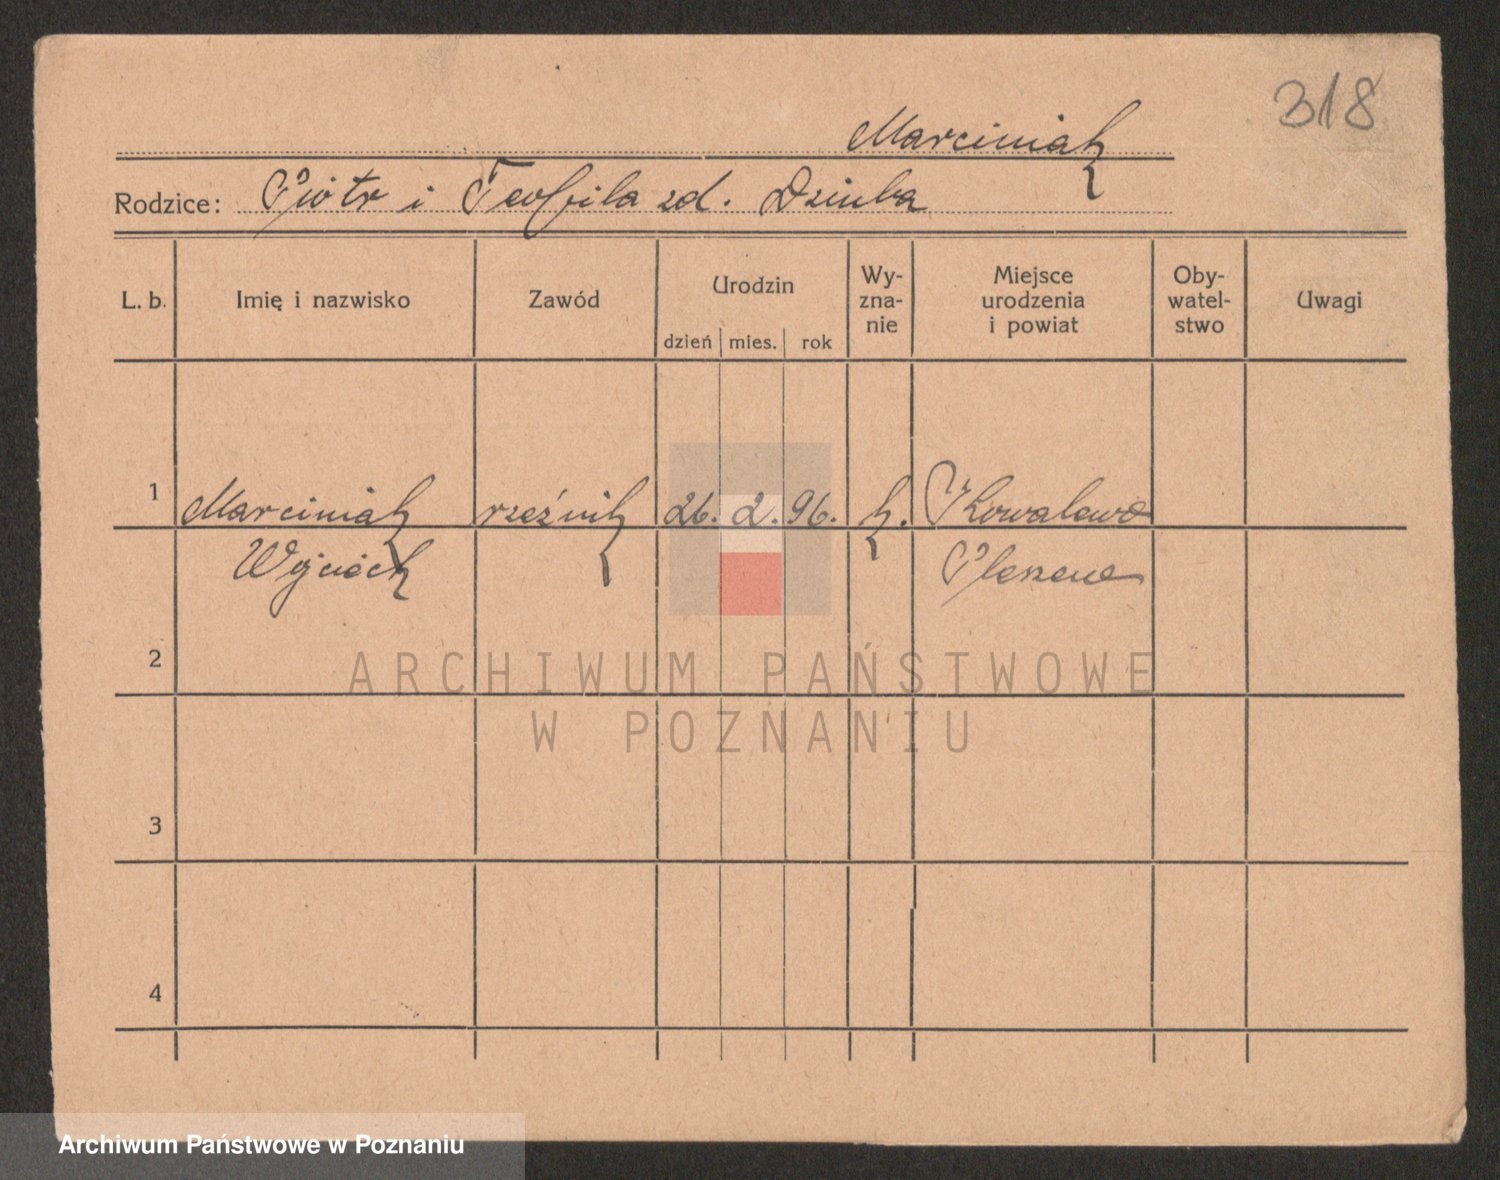 318
Marciniak
Rodzice: Piotr i Teofila zd. Dziuba
L. b. Imię i nazwisko Zawód Urodzin dzień mies. rok Wy-zna-nie Miejsce urodzenia i powiat Oby-watel-stwo Uwagi
1 Marciniak rzeźnik 26. 2. 96. k. Kowalewo
Wojciech Pleszew
2
ARCHIWUM PAŃSTWOWE
W POZNANIU
3
4
Archiwum Państwowe w Poznaniu